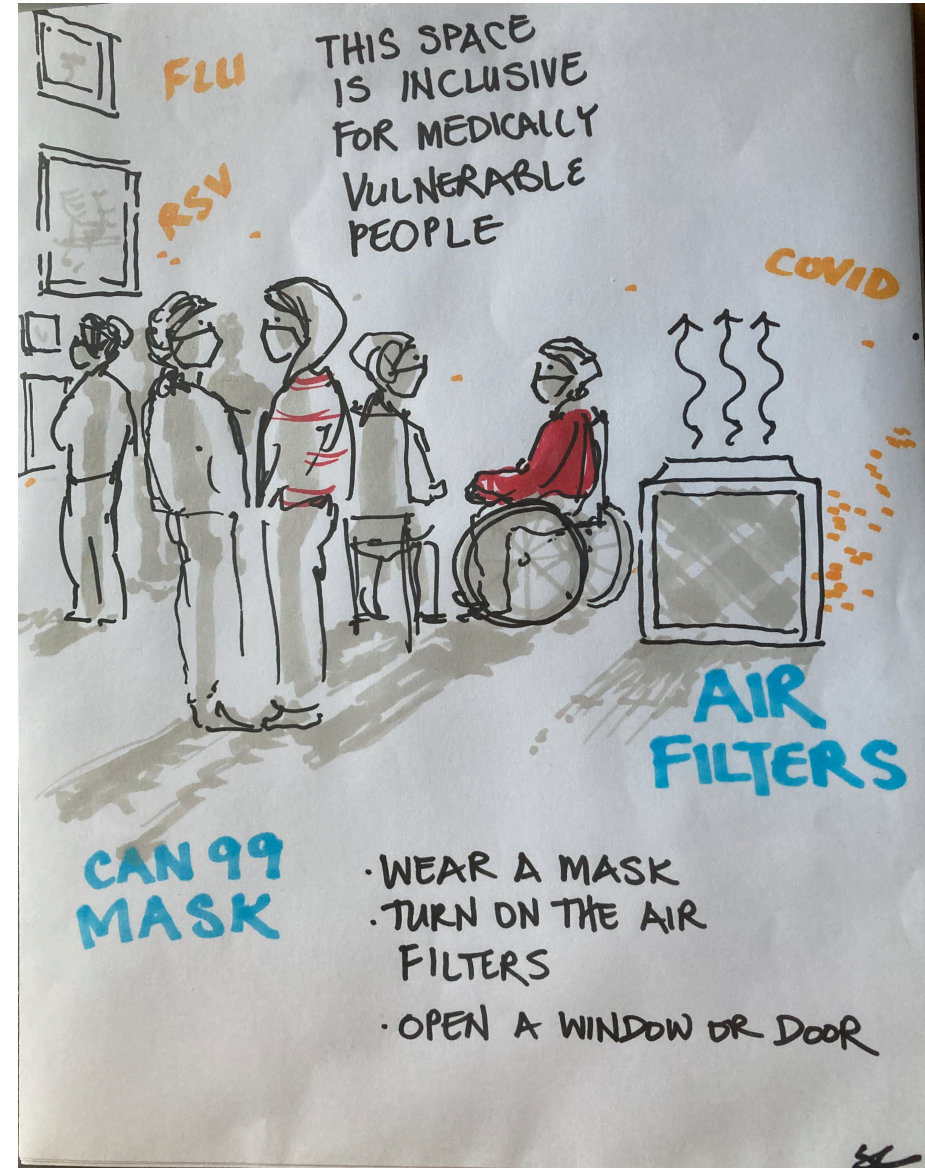 FLU
THIS SPACE
IS INCLUSIVE
FOR MEDICALLY
VULNERABLE
PEOPLE
RSV
COVID
AIR
FILTERS
CAN 99
MASK
· WEAR A MASK
· TURN ON THE AIR
FILTERS
· OPEN A WINDOW OR DOOR